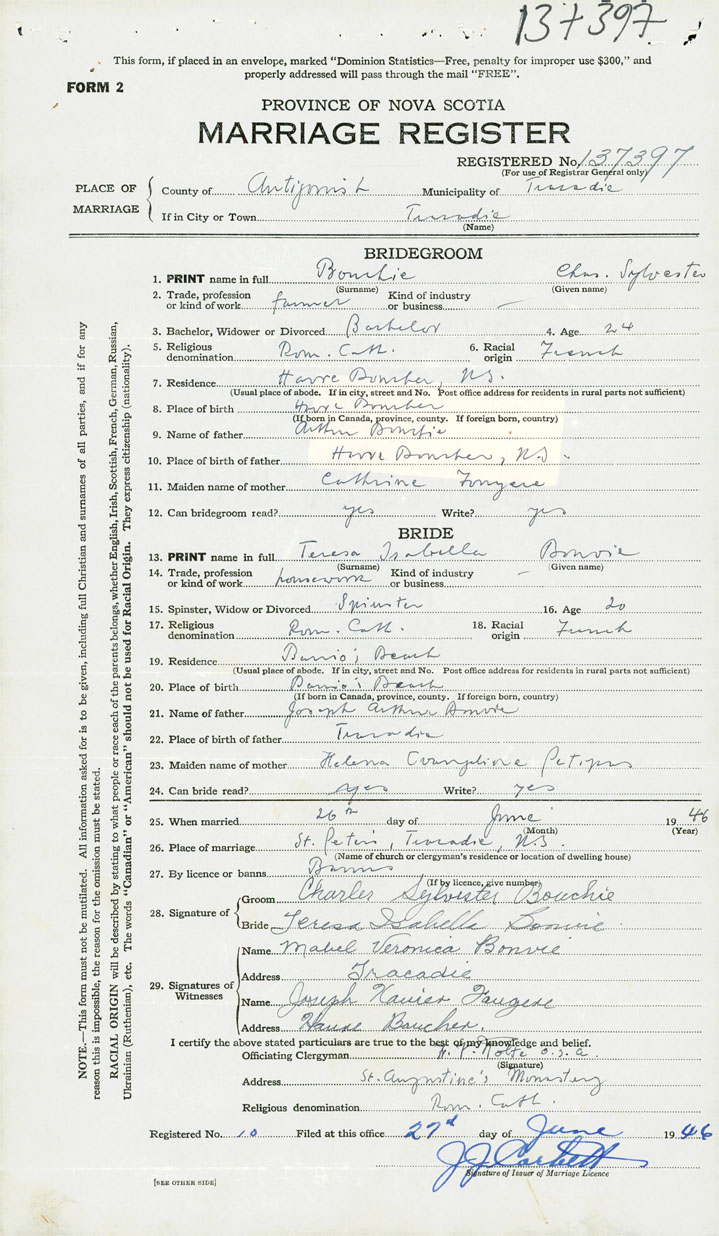 137397
This form, if placed in an envelope, marked “Dominion Statistics—Free, penalty for improper use $300,” and
properly addressed will pass through the mail “FREE”.
FORM 2
PROVINCE OF NOVA SCOTIA
MARRIAGE REGISTER
REGISTERED No. 137397
(For use of Registrar General only)
PLACE OF MARRIAGE
County of Antigonish Municipality of Tracadie
If in City or Town Tracadie
(Name)
BRIDEGROOM
1. PRINT name in full Bouchie Chas. Sylvester
(Surname) (Given name)
2. Trade, profession or kind of work farmer Kind of industry or business —
3. Bachelor, Widower or Divorced Bachelor 4. Age 24
5. Religious denomination Rom. Cath. 6. Racial origin French
7. Residence Havre Boucher, N.S.
(Usual place of abode. If in city, street and No. Post office address for residents in rural parts not sufficient)
8. Place of birth Havre Boucher
(If born in Canada, province, county. If foreign born, country)
9. Name of father Arthur Bouchie
10. Place of birth of father Havre Boucher, N.S.
11. Maiden name of mother Cathrine Fougere
12. Can bridegroom read? yes Write? yes
BRIDE
13. PRINT name in full Teresa Isabella Bonvie
(Surname) (Given name)
14. Trade, profession or kind of work housework Kind of industry or business —
15. Spinster, Widow or Divorced Spinster 16. Age 20
17. Religious denomination Rom. Cath. 18. Racial origin French
19. Residence Barrio's Beach
(Usual place of abode. If in city, street and No. Post office address for residents in rural parts not sufficient)
20. Place of birth Barrio's Beach
(If born in Canada, province, county. If foreign born, country)
21. Name of father Joseph Arthur Bonvie
22. Place of birth of father Tracadie
23. Maiden name of mother Helena Evangeline Petipas
24. Can bride read? yes Write? yes
25. When married 26th day of June 1946
(Month) (Year)
26. Place of marriage St. Peter's, Tracadie, N.S.
(Name of church or clergyman's residence or location of dwelling house)
27. By licence or banns Banns
(If by licence, give number)
28. Signature of
Groom Charles Sylvester Bouchie
Bride Teresa Isabella Bonvie
29. Signatures of Witnesses
Name Mabel Veronica Bonvie
Address Tracadie
Name Joseph Xavier Fougere
Address Havre Boucher.
I certify the above stated particulars are true to the best of my knowledge and belief.
Officiating Clergyman Nolte O.S.A.
(Signature)
Address St. Augustine's Monastery
Religious denomination Rom. Cath.
Registered No. 10 Filed at this office 27d day of June 1946
J J Corbett
Signature of Issuer of Marriage Licence
[SEE OTHER SIDE]
NOTE.—This form must not be mutilated. All information asked for is to be given, including full Christian and surnames of all parties, and if for any
reason this is impossible, the reason for the omission must be stated.
RACIAL ORIGIN will be described by stating to what people or race each of the parents belongs, whether English, Irish, Scottish, French, German, Russian,
Ukrainian (Ruthenian), etc. The words “Canadian” or “American” should not be used for Racial Origin. They express citizenship (nationality).